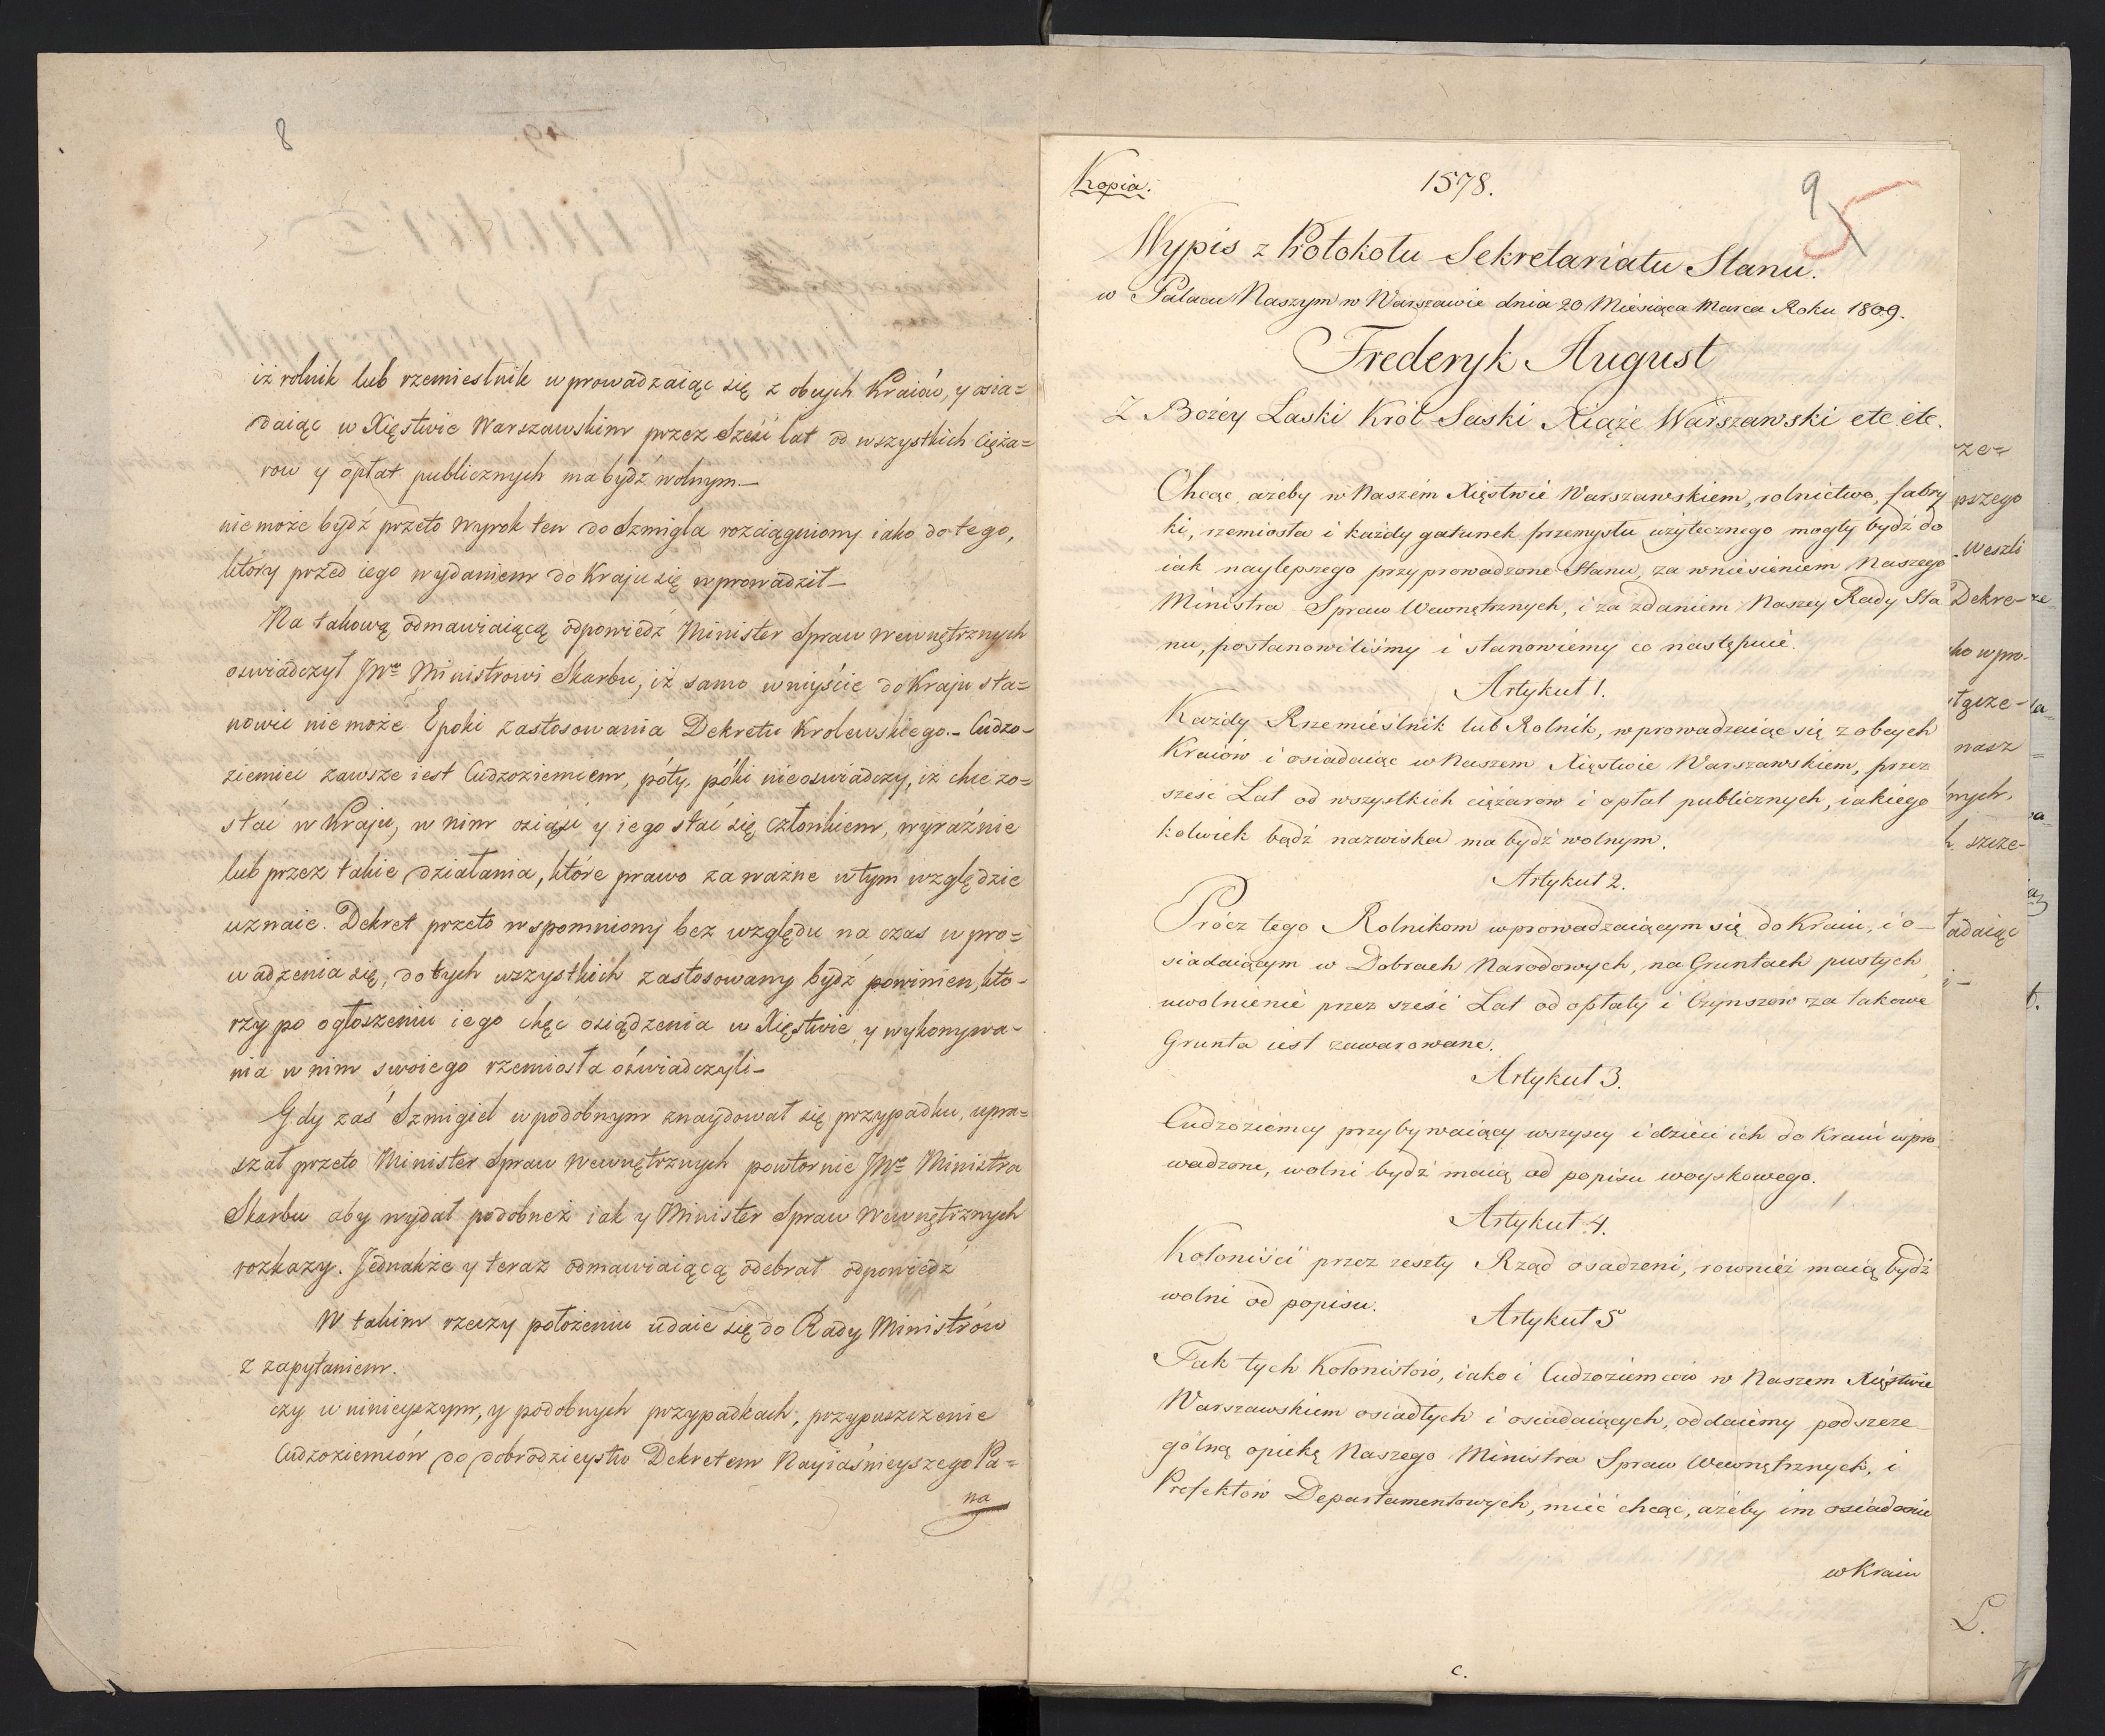 8
iż rolnik lub rzemieslnik wprowadzaiąc się z obcych Kraiów, y osia=
daiąc w Xięstwie Warszawskim przez Sześć lat od wszystkich Cięża=
row y opłat publicznych ma bydź wolnym.—
nie może bydź przeto Wyrok ten do Szmigla rozciągniony iako do tego,
ktory przed iego wydaniem do Kraju się wprowadził—
Na takową odmawiaiącą odpowiedź Minister Spraw Wewnętrznych
oswiadczył JWu Ministrowi Skarbu, iż samo wniyście do Kraju sta=
nowić nie może Epoki zastosowania Dekretu Krolewskiego.— Cudzo-
ziemiec zawsze iest Cudzoziemcem, póty, póki nie oswiadczy, iż chce zo=
stać w Kraju, w nim osiąść y iego stać się członkiem, wyraźnie
lub przez takie działania, które prawo za ważne w tym względzie
uznaie. Dekret przeto wspomniony bez względu na czas wpro=
wadzenia się, do tych wszystkich zastosowany bydź powinien, kto-
rzy po ogłoszeniu iego chęć osiądzenia w Xięstwie y wykonywa-
nia w nim swoiego rzemiosła oświadczyli—
Gdy zaś Szmigiel w podobnym znaydował się przypadku, upra=
szał przeto Minister Spraw Wewnętrznych powtornie JWo Ministra
Skarbu aby wydał podobneż iak y Minister Spraw Wewnętrznych
rozkazy. Jednakże y teraz odmawiaiącą odebrał odpowiedź
W takim rzeczy położeniu udaie się do Rady Ministrów
z zapytaniem.
czy w ninieyszym, y podobnych przypadkach, przypuszczenie
Cudzoziemców do dobrodzieystw Dekretem Nayiaśnieyszego Pa=
na
Kopia.
1578.
9
5
Wypis z Protokołu Sekretariatu Stanu.
w Pałacu Naszym w Warszawie dnia 20 Miesiąca Marca Roku 1809.
Frederyk August
Z Bożey Łaski Król Saski Xiąże Warszawski etc. etc.
Chcąc, ażeby w Naszém Xięstwie Warszawskiem, rolnictwo, fabry
ki, rzemiosła i każdy gatunek przemysłu użytecznego mogły bydź do
iak naylepszego przyprowadzone Stanu, za wniesieniem Naszego
Ministra Spraw Wewnętrznych, i za zdaniem Naszey Rady Sta
nu, postanowiliśmy i stanowiemy co następuie.
Artykuł 1.
Każdy Rzemieślnik lub Rolnik, wprowadzaiąc się z obcych
Kraiów i osiadaiąc w Naszem Xięstwie Warszawskiem, przez
sześć Lat od wszystkich ciężarow i opłat publicznych, iakiego
kolwiek bądź nazwiska ma bydź wolnym.
Artykuł 2.
Prócz tego Rolnikom wprowadzaiącym się do Kraiu, i o—
siadaiącym w Dobrach Narodowych, na Gruntach pustych,
uwolnienie przez sześć Lat od opłaty i Czynszow za takowe
Grunta iest zawarowane.
Artykuł 3.
Cudzoziemcy przybywaiący wszyscy i dzieci ich do Kraiu wpro
wadzone, wolni bydź maią od popisu woyskowego.
Artykuł 4.
Koloniści przez zeszły Rząd osadzeni, rownież maią bydź
wolni od popisu.
Artykuł 5
Tak tych Kolonistów, iako i Cudzoziemców w Naszem Xięstwie
Warszawskiem osiadłych i osiadaiących, oddaiemy pod szcze
gólną opiekę Naszego Ministra Spraw Wewnętrznych, i
Prefektów Departamentowych, mieć chcąc, ażeby im osiadanie
w Kraiu
c.
rze=
pszego
weszli
Dekre-
ko wpro-
nasz
nych,
szcze-
adaiąc
L.